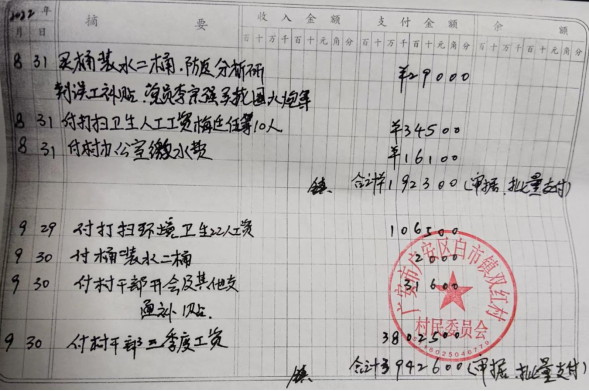 2022年 摘要 收入金额 支付金额 余额
月 日 百十万千百十元角分 百十万千百十元角分 百十万千百十元角分
8 31 买桶装水二桶.防疫分析研 ¥29000
判误工补贴.
8 31 付打扫卫生人工工资 等10人 ¥34500
8 31 付村办公室缴水费 ¥16100
合计 192300 (单据.批量支付)
9 29 付打扫环境卫生22人工资 106500
9 30 付桶装水二桶 2000
9 30 付村干部开会及其他交 31600
通补贴.
9 30 付村干部三季度工资 3802500
合计 3942600 (单据.批量支付)
广安市广安区白市镇双红村
村民委员会